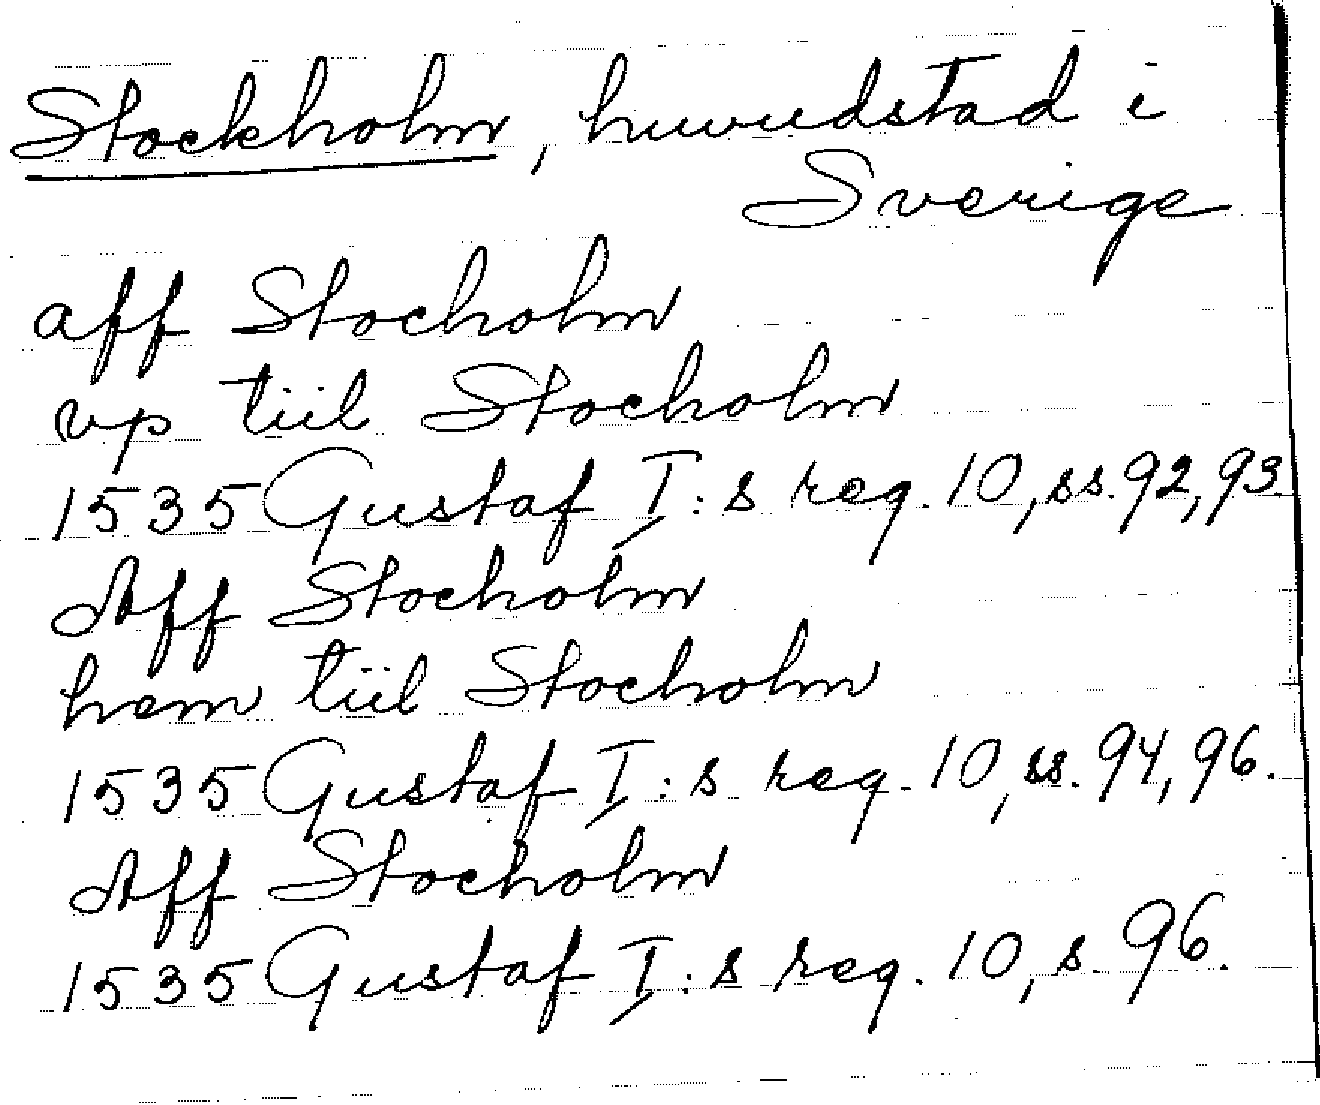 Stockholm, huvudstad i
Sverige
aff Stocholm
vp tiil Stocholm
1535 Gustaf I:s reg. 10, ss. 92, 93
Aff Stocholm
hem tiil Stocholm
1535 Gustaf I:s reg. 10, ss. 94, 96.
Aff Stocholm
1535 Gustaf I:s reg. 10, s. 96.